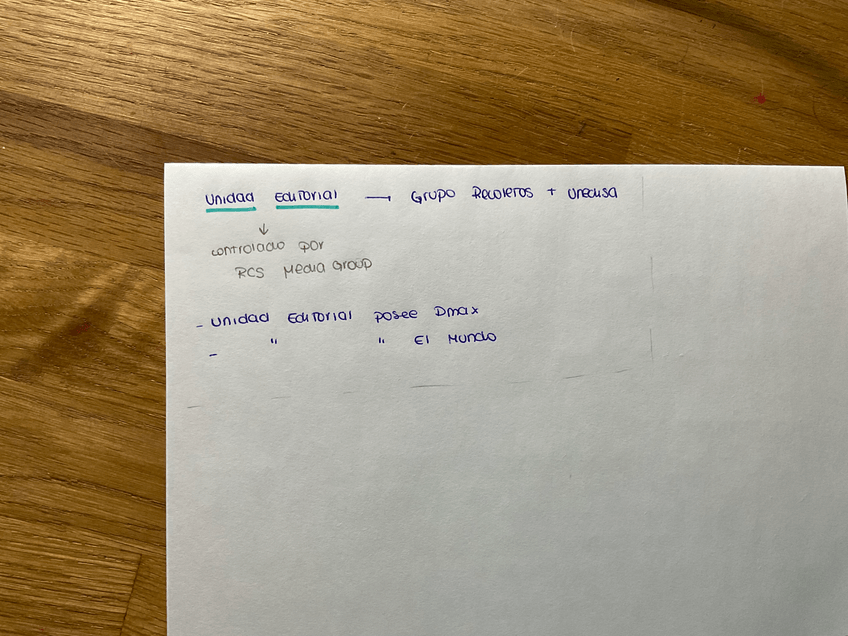 Unidad Editorial → Grupo Recoletos + Unedisa
↓
controlado por
RCS Media Group
- Unidad Editorial posee Dmax
- " " El Mundo